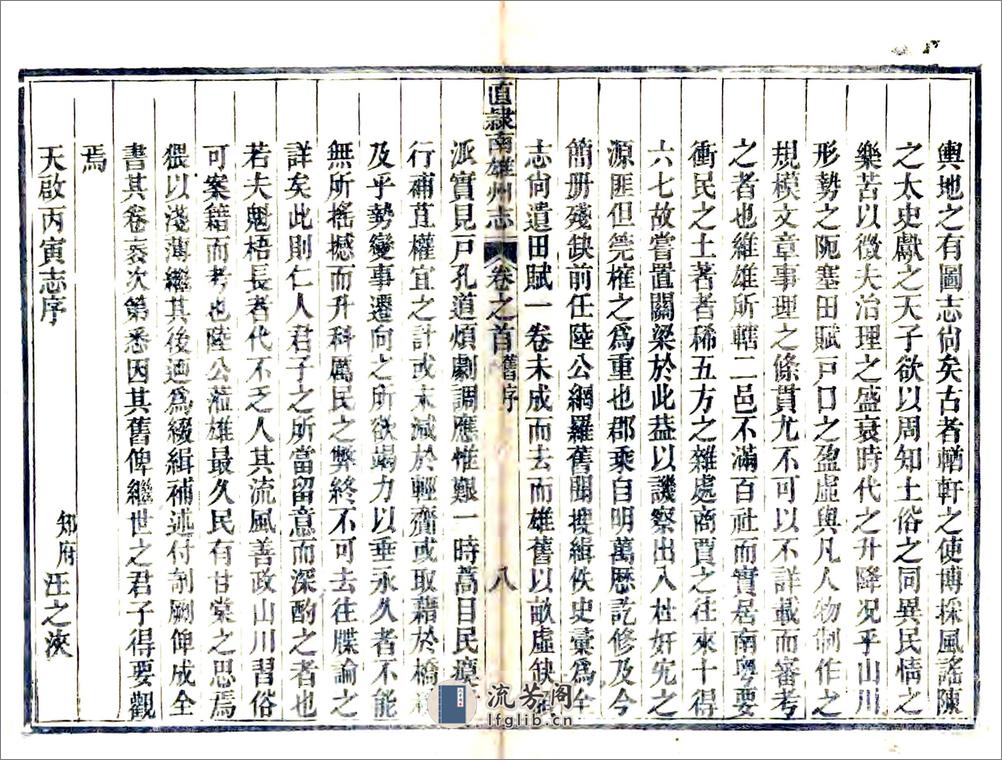 輿地之有圖志尙矣古者輶軒之使博採風謠陳
之太史獻之天子欲以周知土俗之同異民情之
樂苦以徵夫治理之盛衰時代之升降況乎山川
形勢之阨塞田賦戸口之盈虛與凡人物制作之
規模文章事理之條貫尤不可以不詳載而審考
之者也維雄所轄二邑不滿百社而實居南粤要
衝民之土著者稀五方之雜處商賈之往來十得
六七故嘗置關梁於此葢以譏察出入杜奸宄之
源匪但筦榷之爲重也郡乘自明萬歷訖修及今
簡册殘缺前任陸公網羅舊聞搜緝佚史彚爲全
志尙遺田賦一卷未成而去而雄舊以畝虛缺
直隸南雄州志
卷之首
舊序
八
派實見戸孔道煩劇調應惟艱一時蒿目民瘼
行補苴權宜之計或末減於輕齎或取藉於橋
及乎勢變事遷向之所欲竭力以垂永久者不能
無所搖撼而升科厲民之弊終不可去往牒論之
詳矣此則仁人君子之所當留意而深酌之者也
若夫魁梧長者代不乏人其流風善政山川習俗
可案籍而考也陸公蒞雄最久民有甘棠之思焉
猥以淺薄繼其後廼爲綴緝補述付剞劂俾成全
書其卷袠次第悉因其舊俾繼世之君子得要觀
焉
天啟丙寅志序
知府
汪之
流芳阁
lfglib.cn